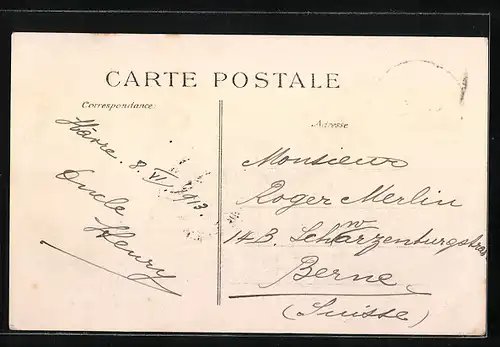 CARTE POSTALE
Correspondance:
Hâvre. 8. VI. 1913.
Oncle
Henry
Adresse
Monsieur
Roger Merlin
14B. Scharzenburgstras
w
Berne
(Suisse)